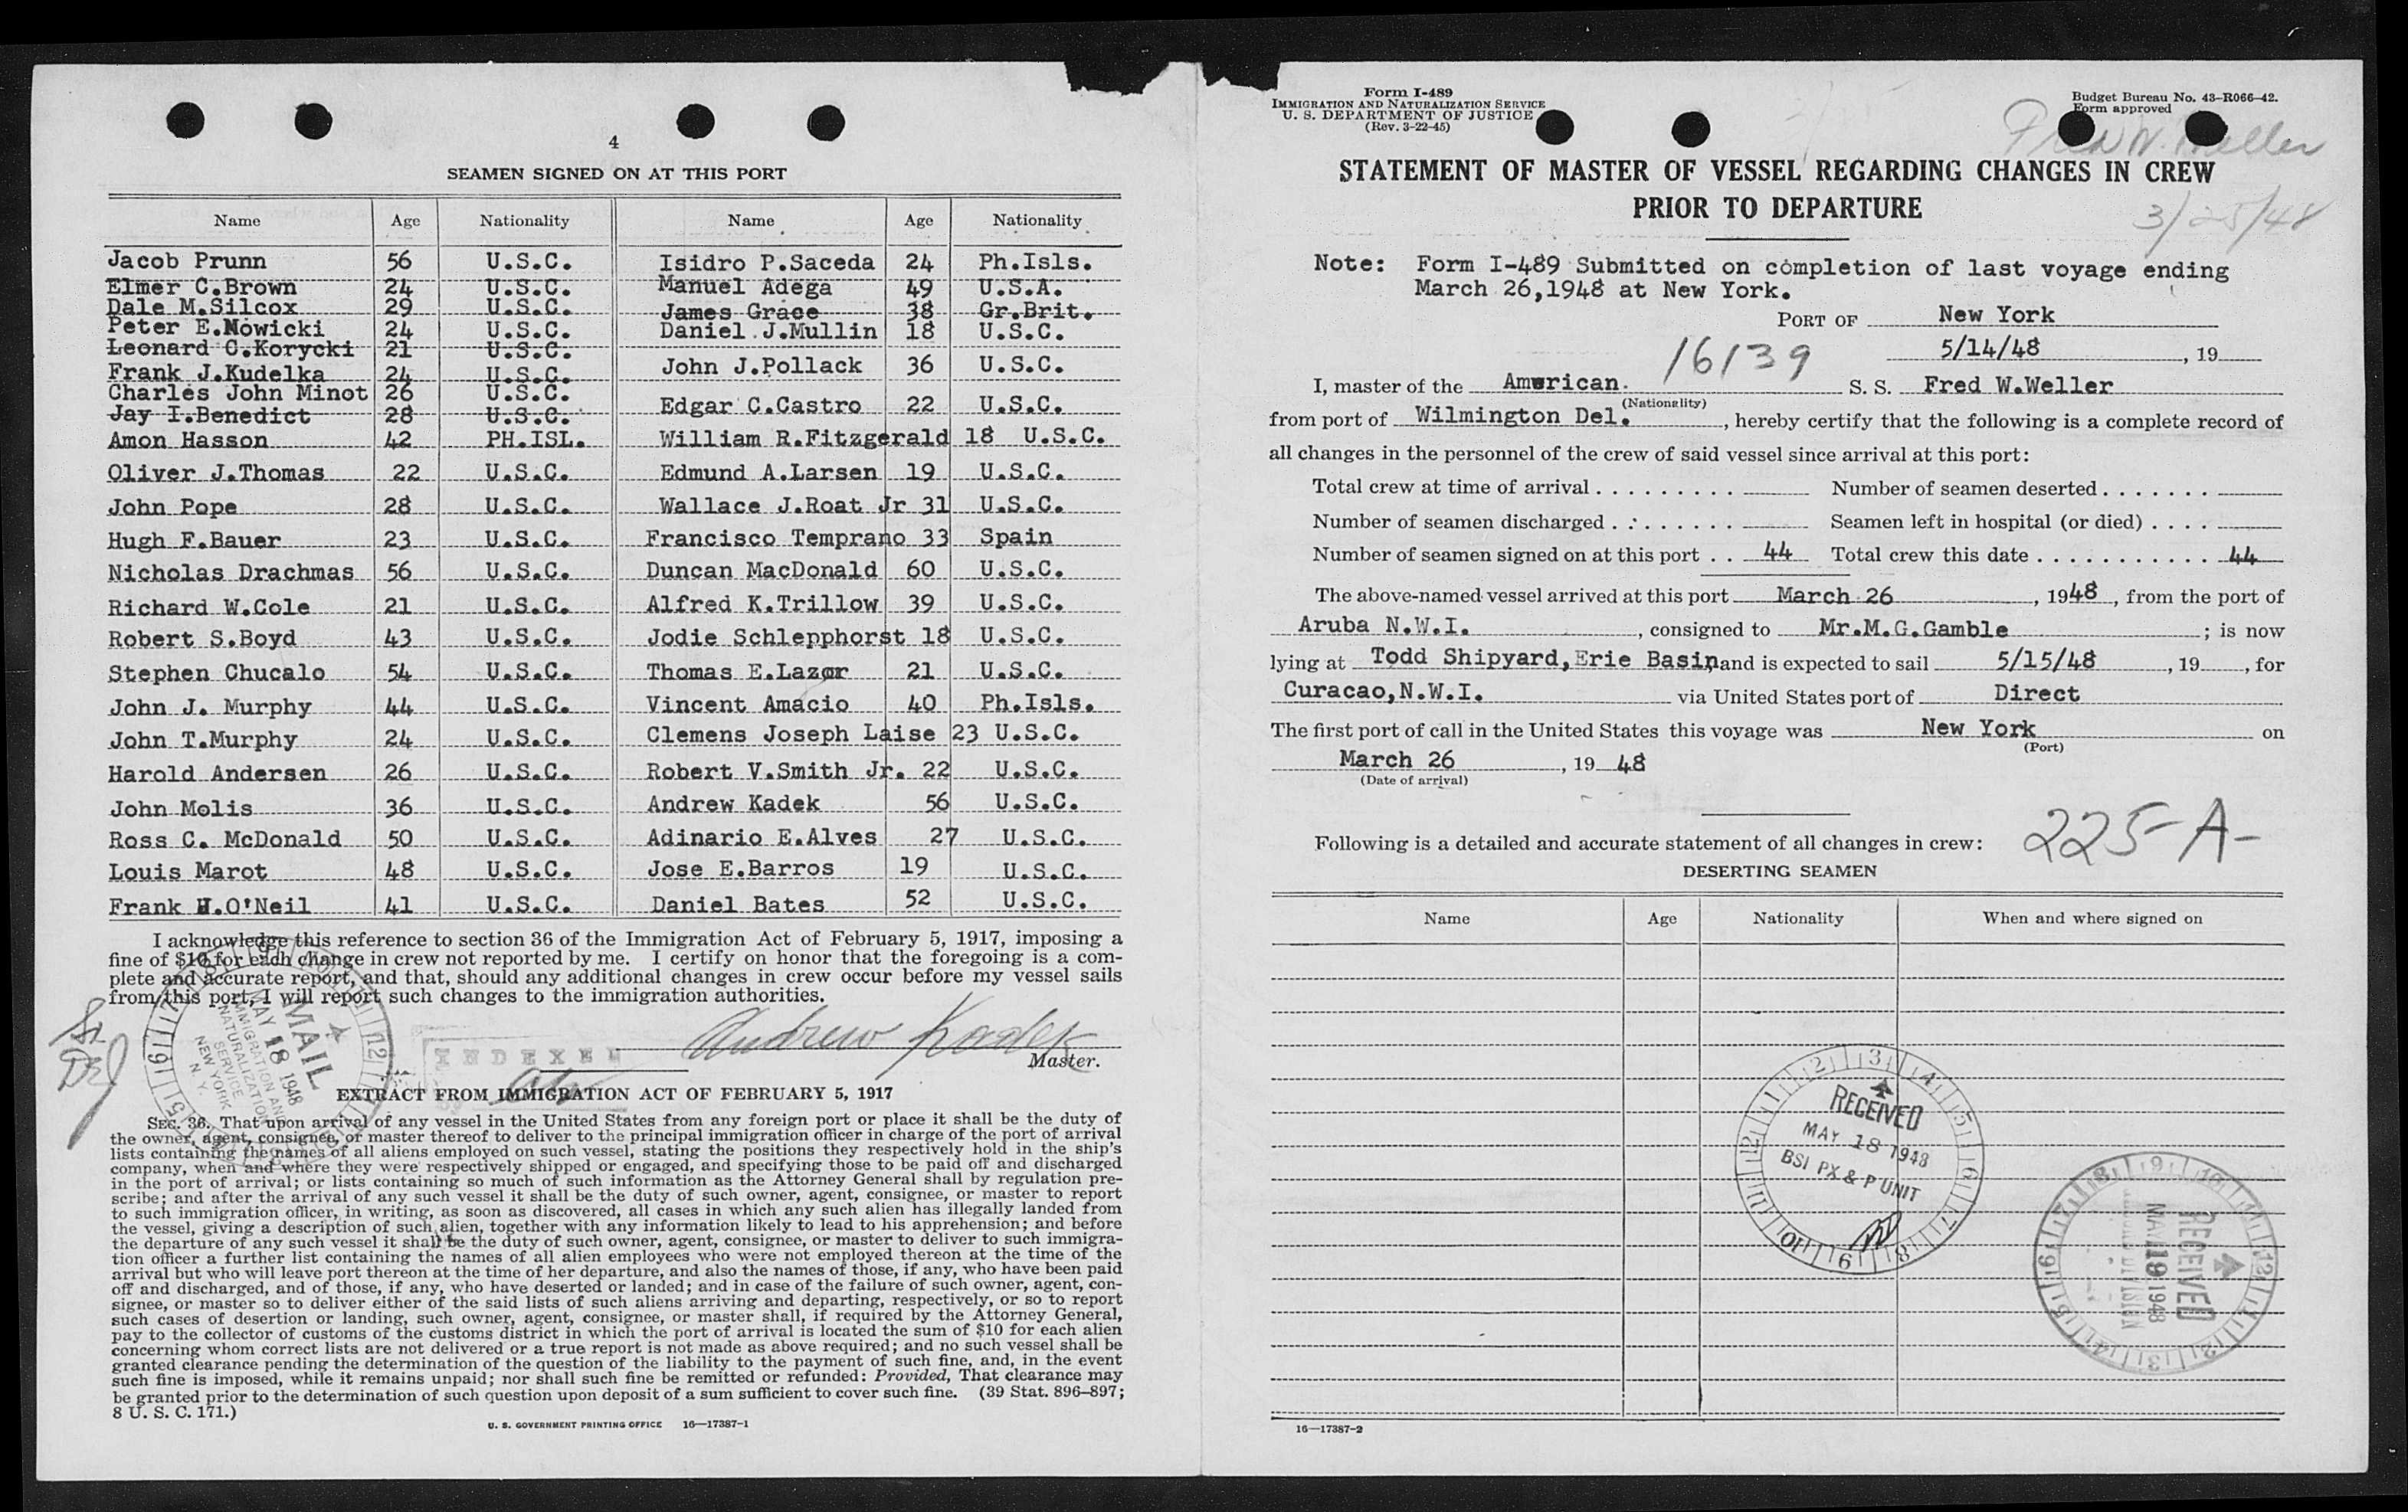 4
SEAMEN SIGNED ON AT THIS PORT
Name Age Nationality Name Age Nationality
Jacob Prunn 56 U.S.C. Isidro P.Saceda 24 Ph.Isls.
Elmer C.Brown 24 U.S.C. Manuel Adega 49 U.S.A.
Dale M.Silcox 29 U.S.C. James Grace 38 Gr.Brit.
Peter E.Nowicki 24 U.S.C. Daniel J.Mullin 18 U.S.C.
Leonard C.Korycki 21 U.S.C.
Frank J.Kudelka 24 U.S.C. John J.Pollack 36 U.S.C.
Charles John Minot 26 U.S.C.
Jay I.Benedict 28 U.S.C. Edgar C.Castro 22 U.S.C.
Amon Hasson 42 PH.ISL. William R.Fitzgerald 18 U.S.C.
Oliver J.Thomas 22 U.S.C. Edmund A.Larsen 19 U.S.C.
John Pope 28 U.S.C. Wallace J.Roat Jr 31 U.S.C.
Hugh F.Bauer 23 U.S.C. Francisco Temprano 33 Spain
Nicholas Drachmas 56 U.S.C. Duncan MacDonald 60 U.S.C.
Richard W.Cole 21 U.S.C. Alfred K.Trillow 39 U.S.C.
Robert S.Boyd 43 U.S.C. Jodie Schlepphorst 18 U.S.C.
Stephen Chucalo 54 U.S.C. Thomas E.Lazor 21 U.S.C.
John J. Murphy 44 U.S.C. Vincent Amacio 40 Ph.Isls.
John T.Murphy 24 U.S.C. Clemens Joseph Laise 23 U.S.C.
Harold Andersen 26 U.S.C. Robert V.Smith Jr. 22 U.S.C.
John Molis 36 U.S.C. Andrew Kadek 56 U.S.C.
Ross C. McDonald 50 U.S.C. Adinario E.Alves 27 U.S.C.
Louis Marot 48 U.S.C. Jose E.Barros 19 U.S.C.
Frank H.O'Neil 41 U.S.C. Daniel Bates 52 U.S.C.
I acknowledge this reference to section 36 of the Immigration Act of February 5, 1917, imposing a
fine of $10 for each change in crew not reported by me. I certify on honor that the foregoing is a com-
plete and accurate report, and that, should any additional changes in crew occur before my vessel sails
from this port, I will report such changes to the immigration authorities.
MAIL
MAY 18 1948
IMMIGRATION AND
NATURALIZATION
SERVICE
NEW YORK
N. Y.
INDEXED
Andrew Kadek
Master.
EXTRACT FROM IMMIGRATION ACT OF FEBRUARY 5, 1917
SEC. 36. That upon arrival of any vessel in the United States from any foreign port or place it shall be the duty of
the owner, agent, consignee, or master thereof to deliver to the principal immigration officer in charge of the port of arrival
lists containing the names of all aliens employed on such vessel, stating the positions they respectively hold in the ship's
company, when and where they were respectively shipped or engaged, and specifying those to be paid off and discharged
in the port of arrival; or lists containing so much of such information as the Attorney General shall by regulation pre-
scribe; and after the arrival of any such vessel it shall be the duty of such owner, agent, consignee, or master to report
to such immigration officer, in writing, as soon as discovered, all cases in which any such alien has illegally landed from
the vessel, giving a description of such alien, together with any information likely to lead to his apprehension; and before
the departure of any such vessel it shall be the duty of such owner, agent, consignee, or master to deliver to such immigra-
tion officer a further list containing the names of all alien employees who were not employed thereon at the time of the
arrival but who will leave port thereon at the time of her departure, and also the names of those, if any, who have been paid
off and discharged, and of those, if any, who have deserted or landed; and in case of the failure of such owner, agent, con-
signee, or master so to deliver either of the said lists of such aliens arriving and departing, respectively, or so to report
such cases of desertion or landing, such owner, agent, consignee, or master shall, if required by the Attorney General,
pay to the collector of customs of the customs district in which the port of arrival is located the sum of $10 for each alien
concerning whom correct lists are not delivered or a true report is not made as above required; and no such vessel shall be
granted clearance pending the determination of the question of the liability to the payment of such fine, and, in the event
such fine is imposed, while it remains unpaid; nor shall such fine be remitted or refunded: Provided, That clearance may
be granted prior to the determination of such question upon deposit of a sum sufficient to cover such fine. (39 Stat. 896–897;
8 U. S. C. 171.)
U. S. GOVERNMENT PRINTING OFFICE 16—17387-1
Form I-489
IMMIGRATION AND NATURALIZATION SERVICE
U. S. DEPARTMENT OF JUSTICE
(Rev. 3-22-45)
Budget Bureau No. 43–R066–42.
Form approved
Fred W. Weller
3/25/48
STATEMENT OF MASTER OF VESSEL REGARDING CHANGES IN CREW
PRIOR TO DEPARTURE
Note: Form I-489 Submitted on completion of last voyage ending
March 26,1948 at New York.
PORT OF New York
16139
5/14/48, 19
I, master of the American. S. S. Fred W.Weller
(Nationality)
from port of Wilmington Del. , hereby certify that the following is a complete record of
all changes in the personnel of the crew of said vessel since arrival at this port:
Total crew at time of arrival . . . . . . . . . Number of seamen deserted . . . . . . .
Number of seamen discharged . . . . . . . . Seamen left in hospital (or died) . . . .
Number of seamen signed on at this port . . 44 Total crew this date . . . . . . . . . . . 44
The above-named vessel arrived at this port March 26, 1948, from the port of
Aruba N.W.I. , consigned to Mr.M.G.Gamble ; is now
lying at Todd Shipyard,Erie Basin, and is expected to sail 5/15/48 , 19 , for
Curacao,N.W.I. via United States port of Direct
The first port of call in the United States this voyage was New York on
(Port)
March 26 , 19 48
(Date of arrival)
225-A-
Following is a detailed and accurate statement of all changes in crew:
DESERTING SEAMEN
Name Age Nationality When and where signed on
RECEIVED
MAY 18 1948
BSI PX & P UNIT
RECEIVED
MAY 19 1948
16—17387-2